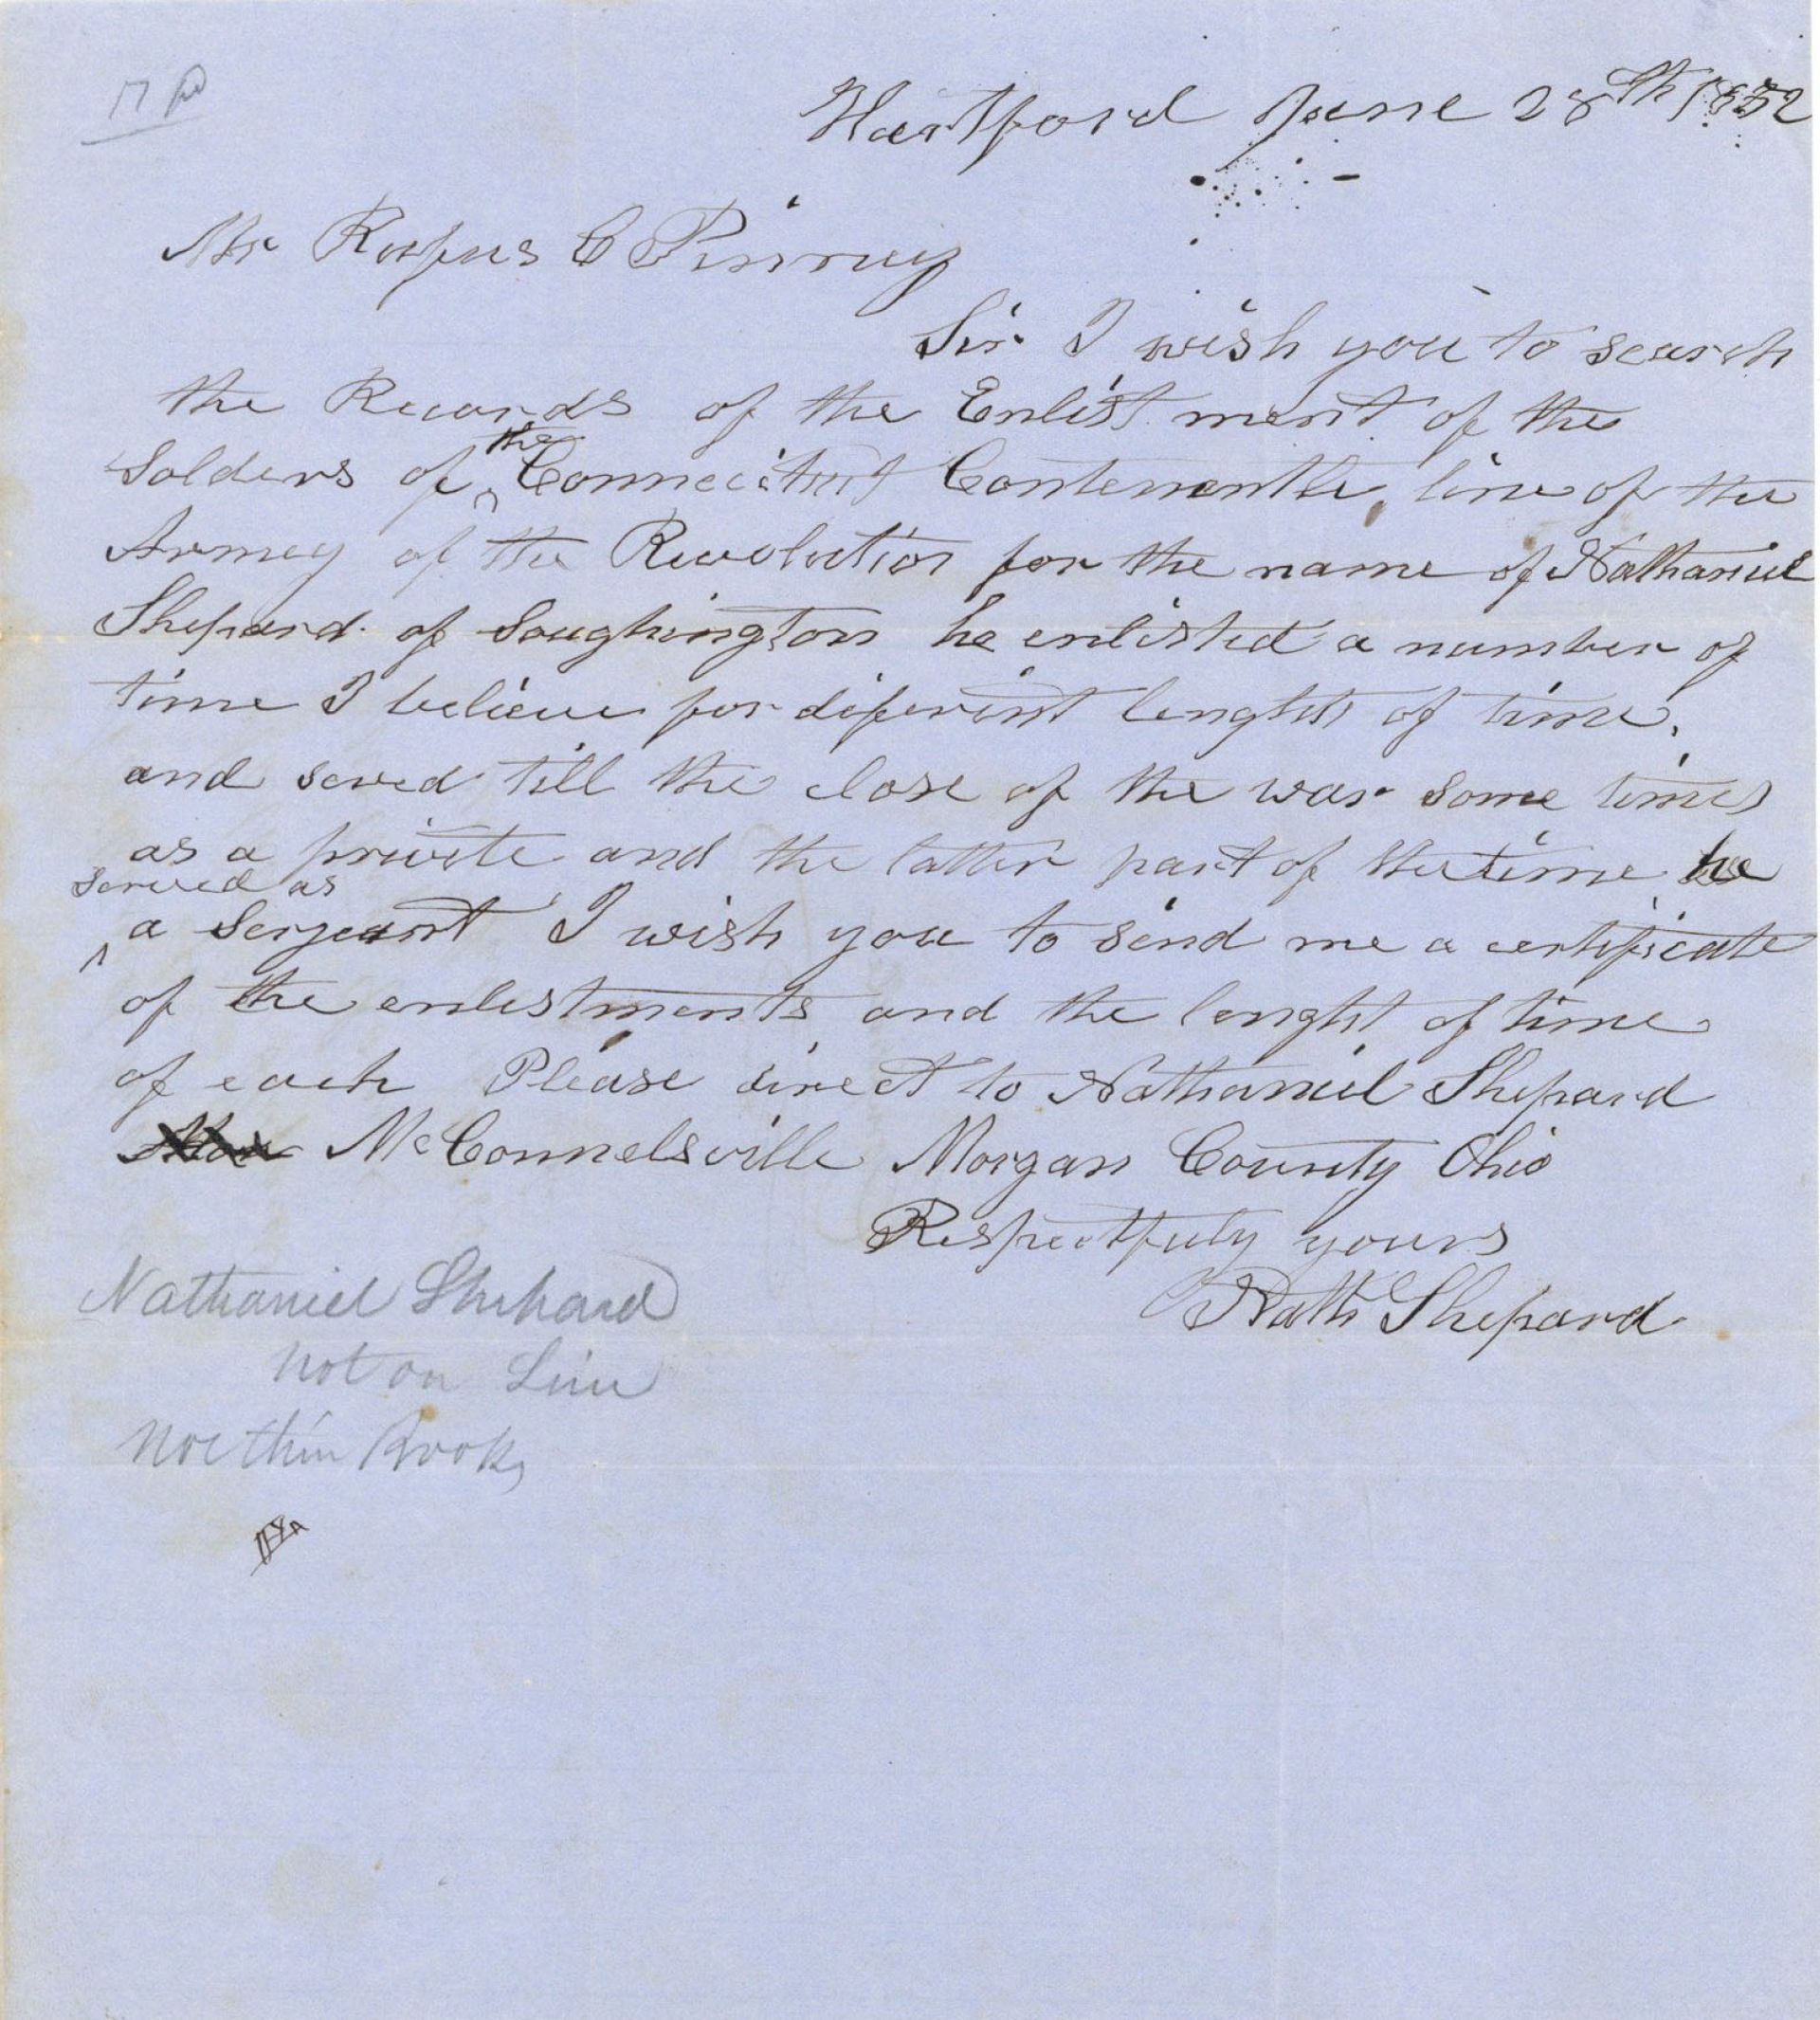 Hartford June 28th 1852
Mr Rufus C Pinney
Sir I wish you to search
the Records of the Enlistment of the
Solders of the Connecitcut Contenentle line of the
Armey of the Revolution for the name of Nathaniel
Shepard of Soughington he enlisted a number of
time I believe for diferent lenghts of time,
and served till the close of the war some times
as a private and the latter part of the time he
served as
a Sergeant I wish you to send me a certificate
of the enlistments and the lenght of time
of each Please direct to Nathaniel Shepard
McConnelsville Morgan County Ohio
Respectfuly yours
Nathl Shepard
Nathaniel Shepard
not on Line
nor thin Book,